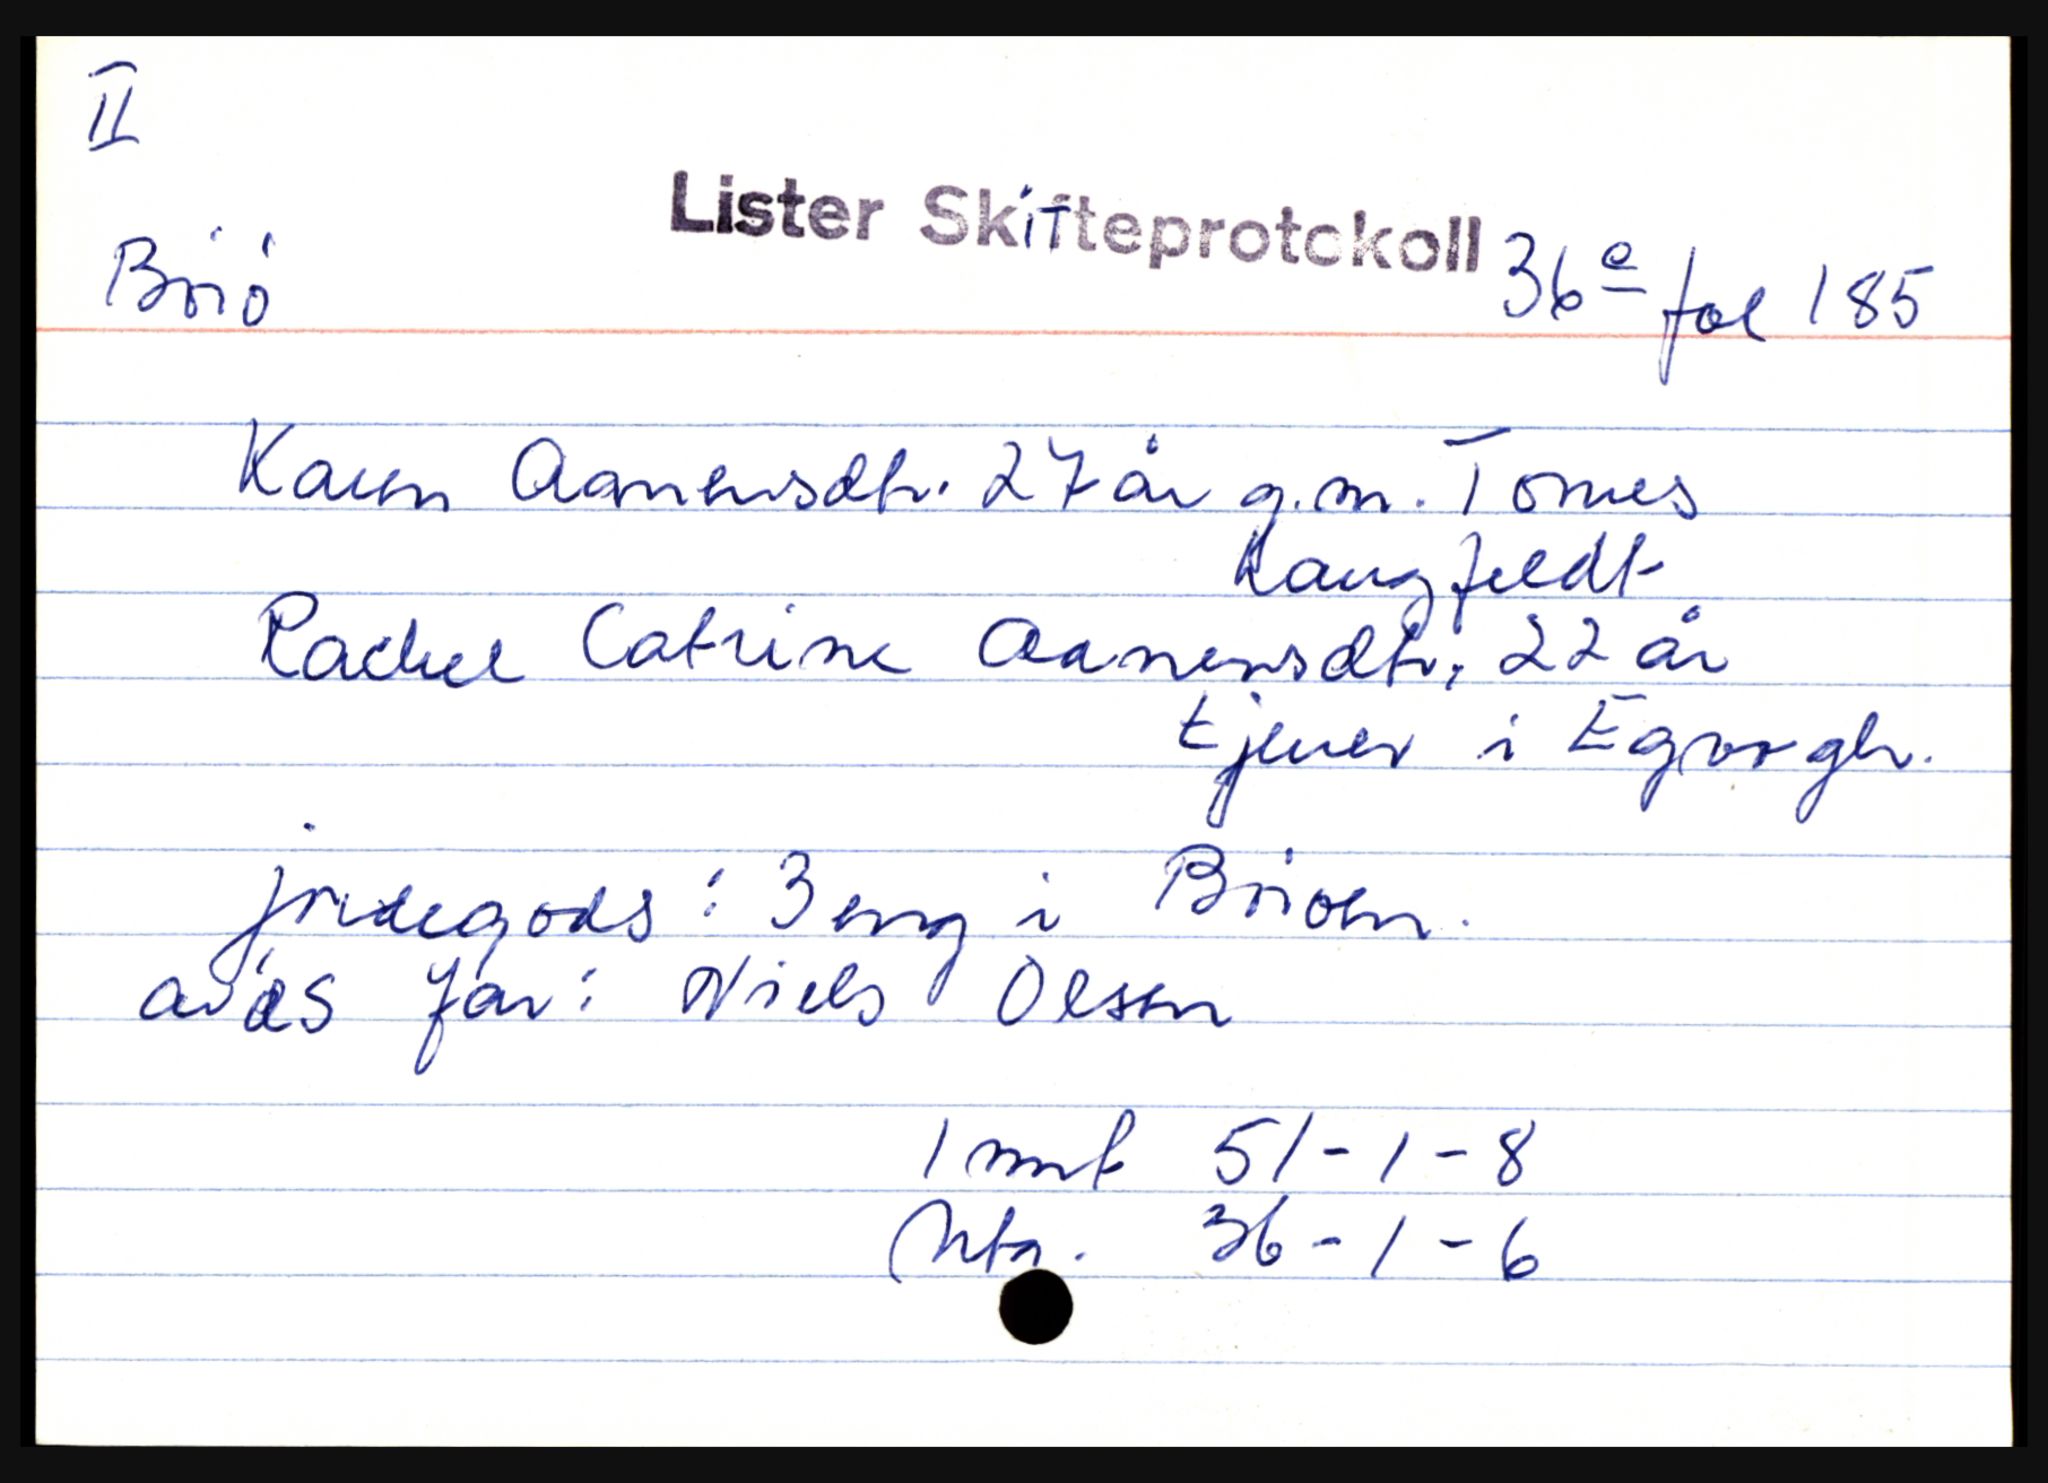 II
Lister Skifteprotokoll 36e fol 185
Briö
Karen Aanensdtr. 27 år g.m. Tomes
Langfeldt
Rachel Catrine Aanensdtr, 22 år
tjener i Egvogh.
jordegods: 3 eng i Briöen.
avdøs far: Niels Olsen
1 mnt 51-1-8
Nto. 36-1-6